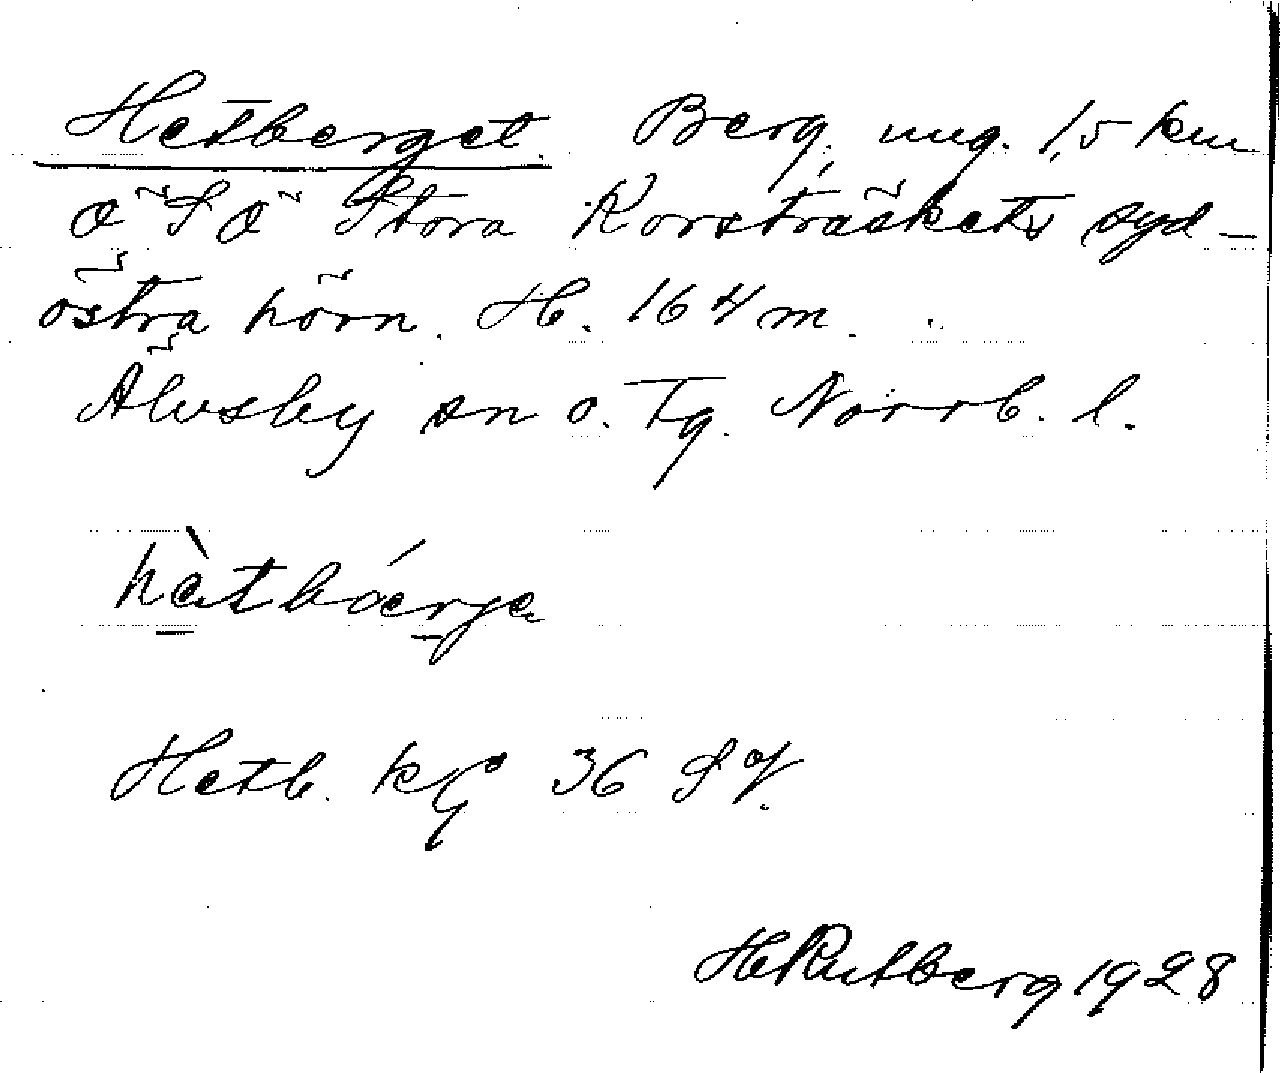 Hetberget. Berg, ung. 1,5 km
ö S ö Stora Korsträskets syd-
östra hörn. H. 164 m.
Älvsby sn o. Tg. Norrb. l.
hètbáerje
Hetb. kg 36 SV.
HRutberg 1928